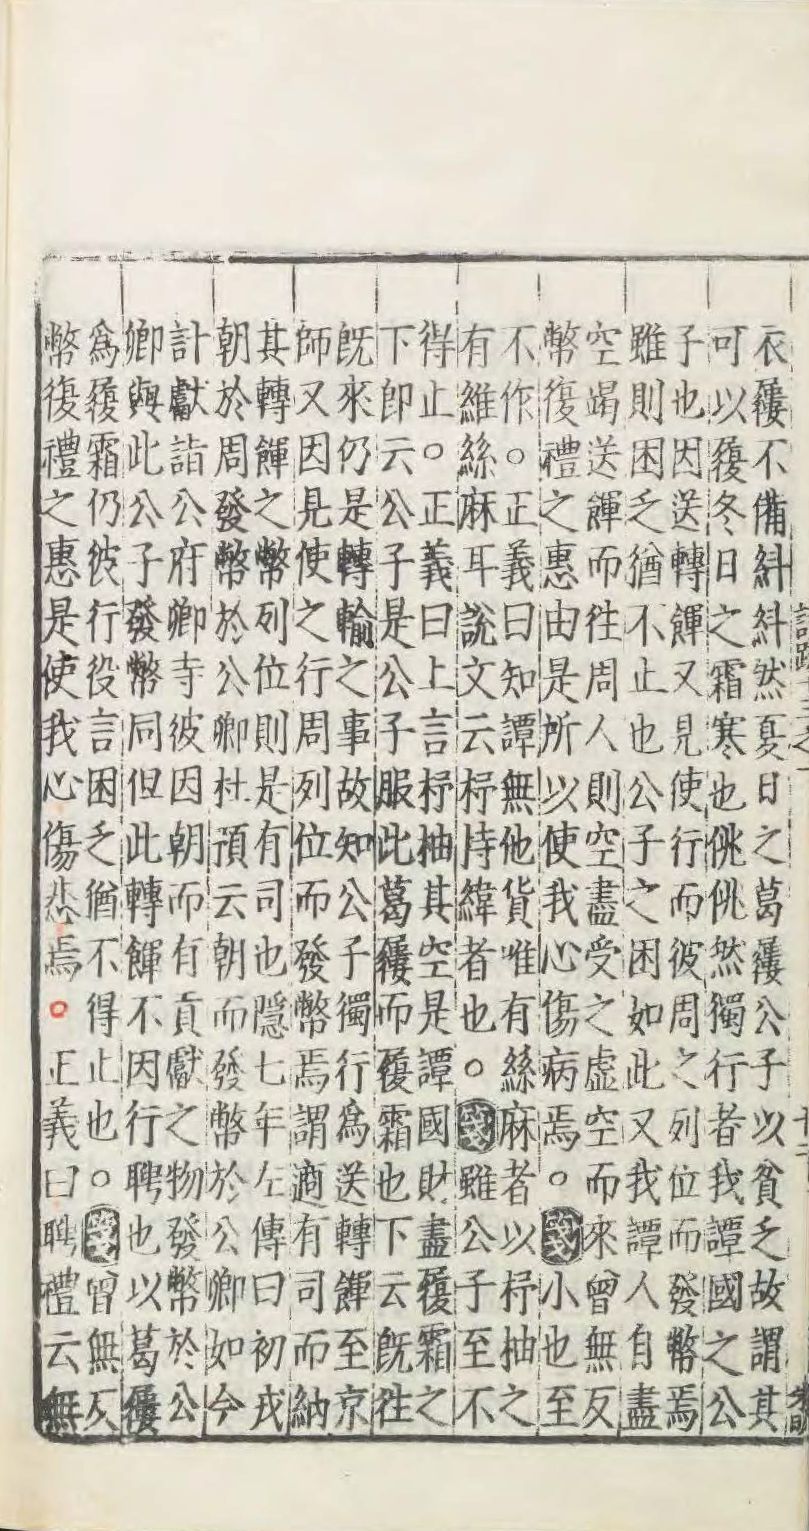 衣屨不備糾糾然夏日之葛屨公子以貧乏故謂其
可以履冬日之霜寒也佻佻然獨行者我譚國之公
子也因送轉餫又見使行而彼周之列位而發幣焉
雖則困乏猶不止也公子之困如此又我譚人自盡
空竭送餫而往周人則空盡受之虛空而來曾無反
幣復禮之惠由是所以使我心傷病焉。箋小也至
不作。正義曰知譚無他貨唯有絲麻者以杼抽之
有維絲麻耳說文云杼持緯者也。箋雖公子至不
得止。正義曰上言杼抽其空是譚國財盡履霜之
下即云公子是公子服此葛屨而履霜也下云旣往
旣來仍是轉輸之事故知公子獨行爲送轉餫至京
師又因見使之行周列位而發幣焉謂適有司而納
其轉餫之幣列位則是有司也隱七年左傳曰初戎
朝於周發幣於公卿杜預云朝而發幣於公卿如今
計獻詣公府卿寺彼因朝而有貢獻之物發幣於公
卿與此公子發幣同但此轉餫不因行聘也以葛屨
爲履霜仍彼行役言困乏猶不得止也。箋曾無反
幣復禮之惠是使我心傷悲焉。正義曰聘禮云無